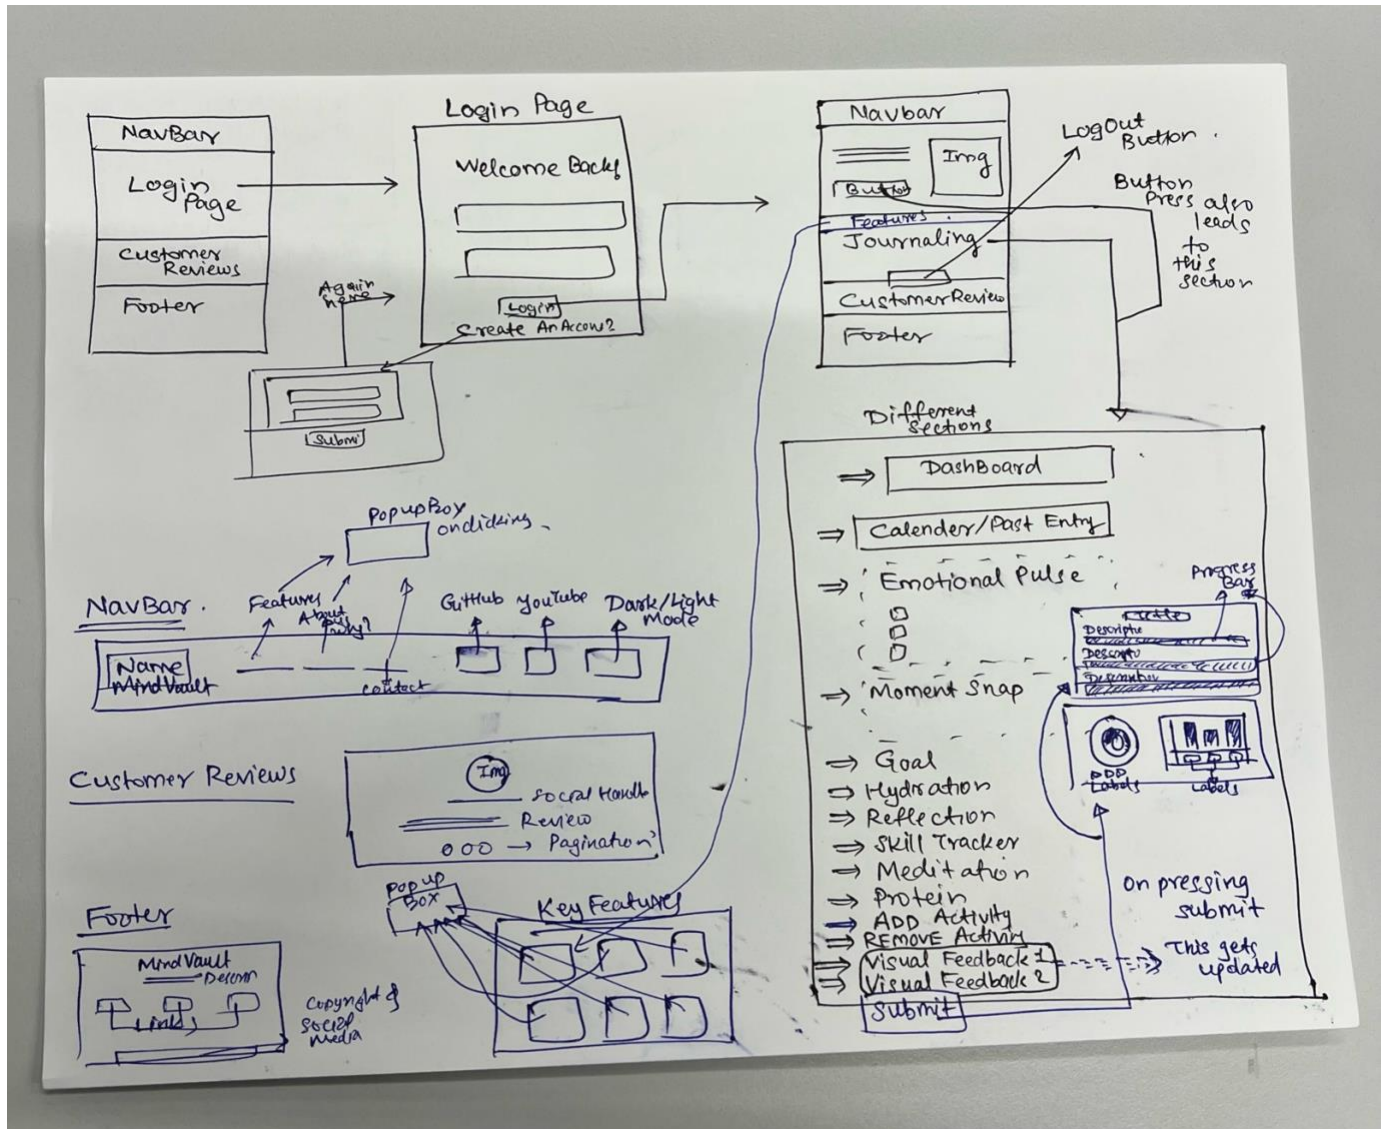 NavBar
Login
Page
Customer
Reviews
Footer
Login Page
Welcome Back!
Login
Create An Accou?
Again
here
Submi
Navbar
Img
Button
Features
Journaling
Customer Review
Footer
LogOut
Button.
Button
Press also
leads
to
this
section
Different
Sections
DashBoard
Calender/Past Entry
Emotional Pulse
Moment Snap
Goal
Hydration
Reflection
Skill Tracker
Meditation
Protein
ADD Activity
REMOVE Activity
Visual Feedback 1
Visual Feedback 2
Submit
Progress
Bar
Title
Descriptio
Descriptio
Description
Labels
Labels
on pressing
submit
This gets
updated
PopupBox
onclicking
NavBar.
Features
About
Why?
GitHub
YouTube
Dark/Light
Mode
Name
MindVault
contact
Customer Reviews
Img
Social Handle
Review
Pagination
Footer
MindVault
Descrn
Links
Copyright &
Social
Media
Popup
Box
Key Features